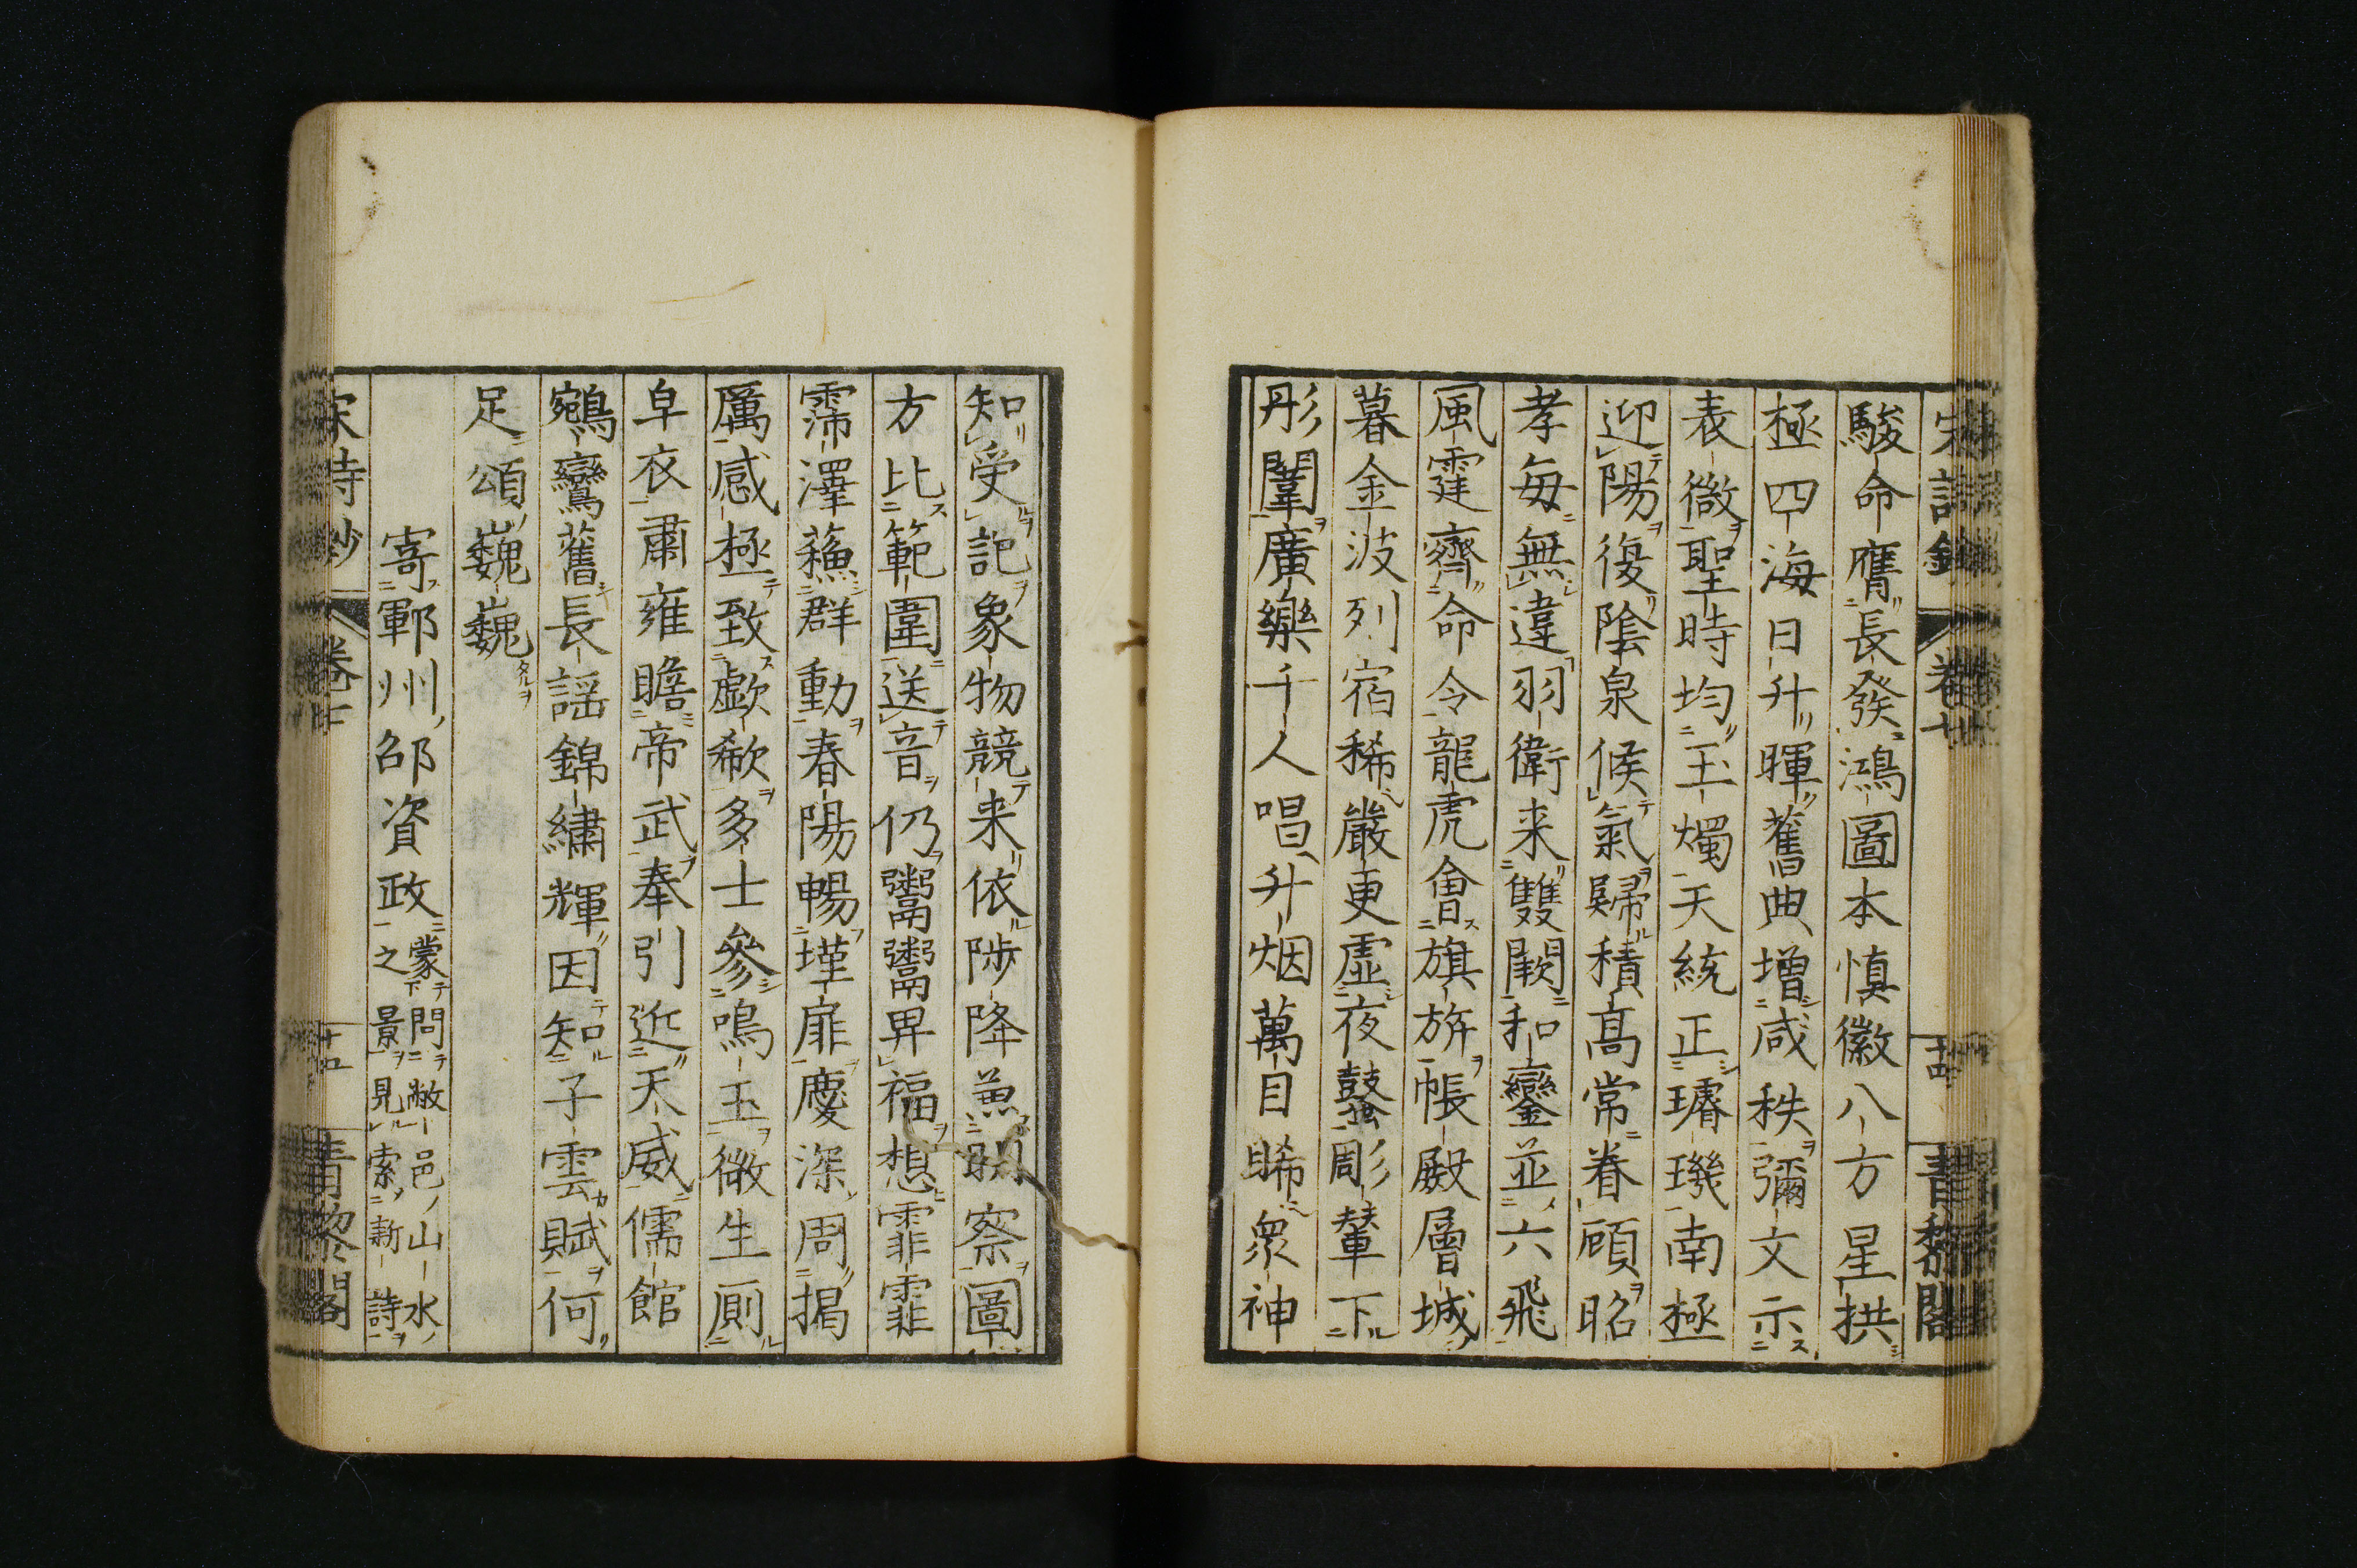 駿命膺長發鴻圖本慎徽八方星拱
極四海日升暉舊典增咸秩彌文示
表微聖時均玉燭天統正璿璣南極
迎陽復陰泉候氣歸積高常眷顧昭
孝每無違羽衛来雙闕和鑾並六飛
風霆齊命令龍虎會旗旂帳殿層城
暮金波列宿稀嚴更虛夜鼜彫輦下
彤闈廣樂千人唱升烟萬目睎衆神
知受記象物競来依陟降兼察圖
方比範圍送音仍鬻鬻畀福想霏霏
霈澤蘓群動春陽暢墐扉慶深周揭
厲感極致歔欷多士參鳴玉微生厠
皁衣肅雍瞻帝武奉引近天威儒館
鵷鸞舊長謡錦繡輝因知子雲賦何
足頌巍巍
寄鄆州邵資政蒙問敝邑山水
之景見索新詩
宋詩鈔 卷七 十五 青黎閣